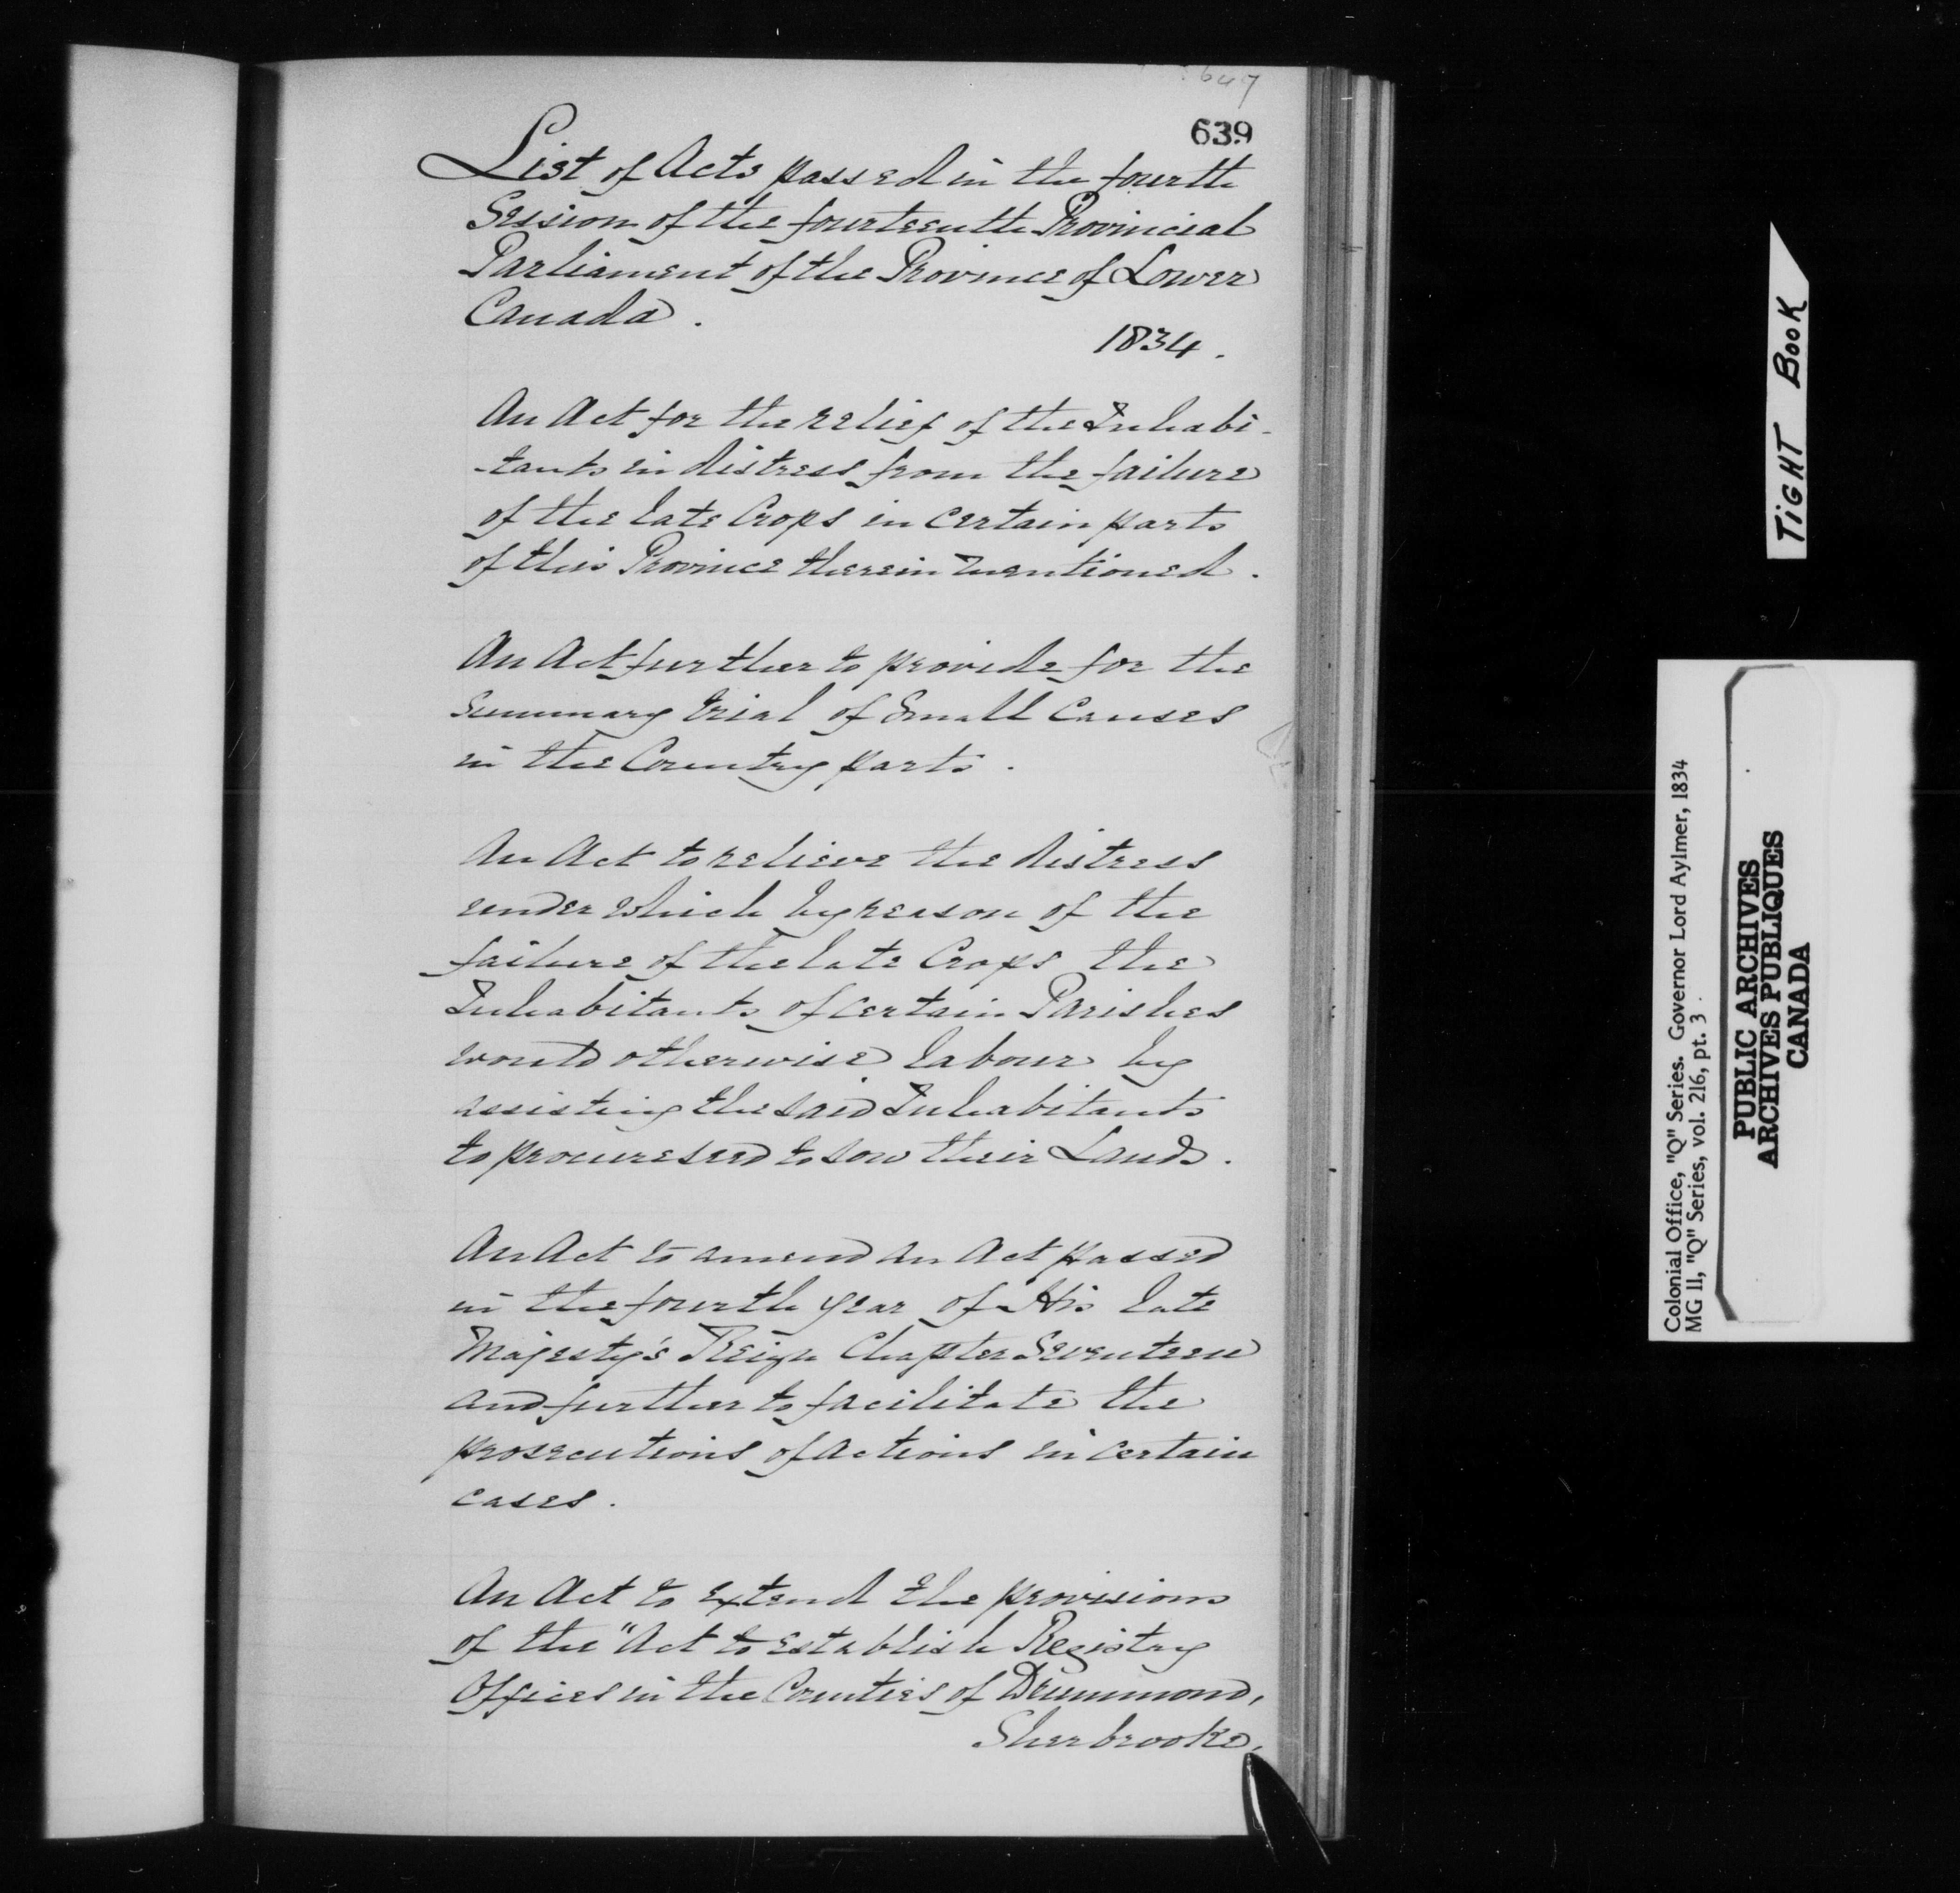 647
639
List of Acts passed in the fourth
Session of the fourteenth Provincial
Parliament of the Province of Lower
Canada.
1834.
An Act for the relief of the Inhabi-
-tants in distress from the failure
of the late Crops in certain parts
of this Province therein mentioned.
An Act further to provide for the
Summary trial of Small Causes
in the Country parts.
An Act to relieve the distress
under which by reason of the
failure of the late Crops the
Inhabitants of certain Parishes
would otherwise labour by
assisting the said Inhabitants
to procure seed to sow their Lands.
An Act to amend an Act passed
in the fourth year of His late
Majesty's Reign Chapter Seventeen
and further to facilitate the
prosecutions of actions in certain
cases.
An Act to extend the provisions
of the "Act to establish Registry
Offices in the Counties of Drummond,
Sherbrooke,
TIGHT BOOK
Colonial Office, "Q" Series. Governor Lord Aylmer, 1834
MG 11, "Q" Series, vol. 216, pt. 3
PUBLIC ARCHIVES
ARCHIVES PUBLIQUES
CANADA